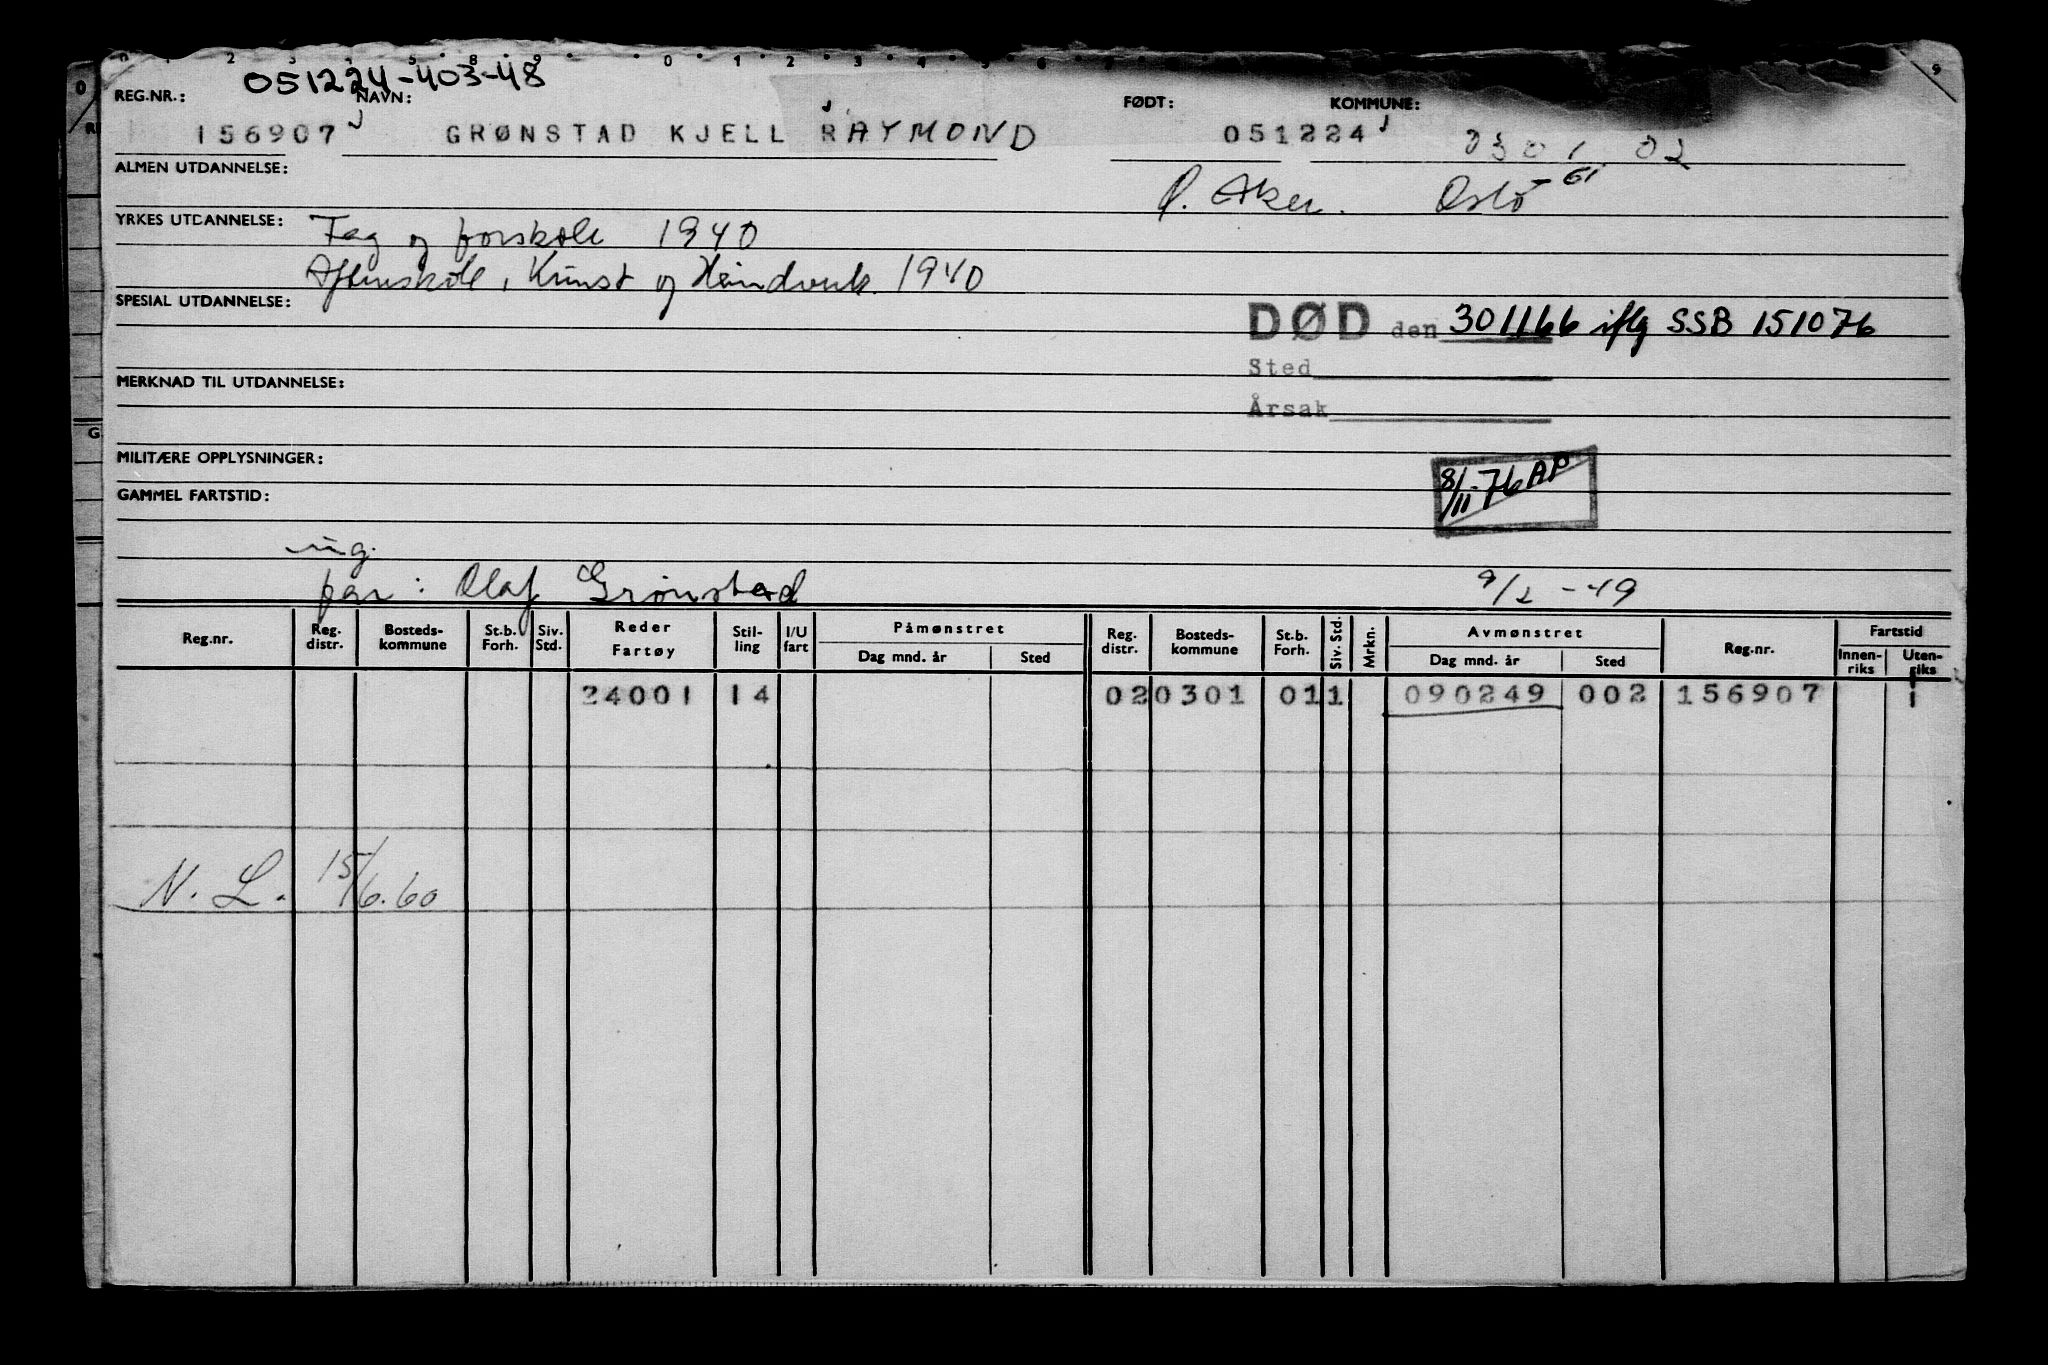 051224-403-48
REG.NR.: NAVN: FØDT: KOMMUNE:
156907 GRØNSTAD KJELL RAYMOND 051224 0301 02
ALMEN UTDANNELSE: Ø. Aker. Oslo - 61
YRKES UTDANNELSE: Fag og forskole 1940
Aftenskole, Kunst og Håndverk 1940
SPESIAL UTDANNELSE:
DØD den 301166 iflg SSB 151076
Sted
MERKNAD TIL UTDANNELSE:
Årsak
MILITÆRE OPPLYSNINGER:
8/11-76 AP
GAMMEL FARTSTID:
ug.
far: Olaf Grønstad 9/2-49
Reg.nr. Reg. distr. Bosteds-kommune St.b. Forh. Siv. Std. Reder Fartøy Stil-ling I/U fart Påmønstret Dag mnd. år Sted Reg. distr. Bosteds-kommune St.b. Forh. Siv. Std. Mrkn. Avmønstret Dag mnd. år Sted Reg.nr. Fartstid Innen-riks Uten-riks
24001 14 02 0301 01 1 090249 002 156907 1
N. L. 15/6.60